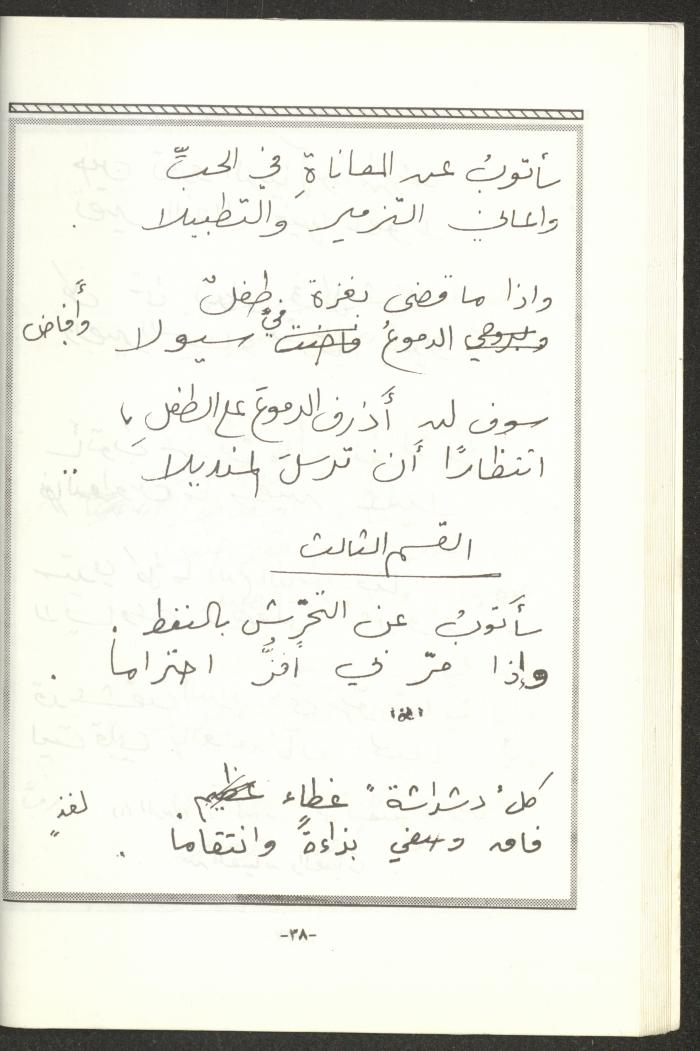 سأتوبُ عن المعاناةِ في الحبِّ
والتزمير والتطبيلا .
واذا ما قضى بغزة طفلٌ
وبروحي الدموعُ فاضت فيَّ سيولا وأفاض
سوف لن أذرف الدموعَ على الطفلِ
انتظارًا أن ترسلَ المنديلا ..
القسم الثالث
سأتوبُ عن التحرّشِ بالنفط .
وإذا مرّ بي أفزُّ احتراماً .
كلُّ دشداشة غطاء عظيم. لفذٍ
فاق وصفي بذاءةً وانتقاماً .
-٣٨-